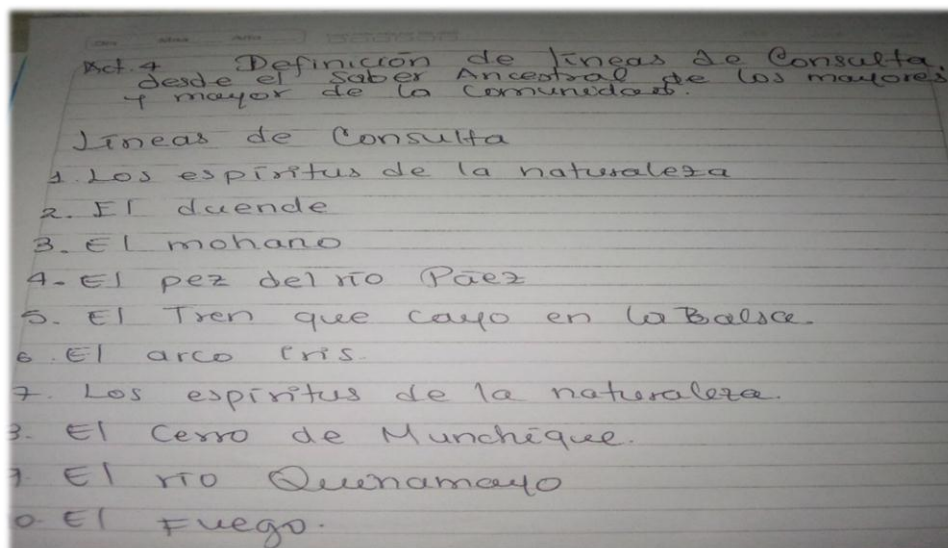 Act. 4 Definición de líneas de Consulta
desde el Saber Ancestral de los mayores
y mayor de la comunidad.
Líneas de Consulta
1. Los espíritus de la naturaleza
2. El duende
3. El mohano
4. El pez del río Páez
5. El Tren que cayo en la Balsa.
6. El arco iris.
7. Los espíritus de la naturaleza.
8. El Cerro de Munchique.
9. El río Quinamayo
0. El Fuego.